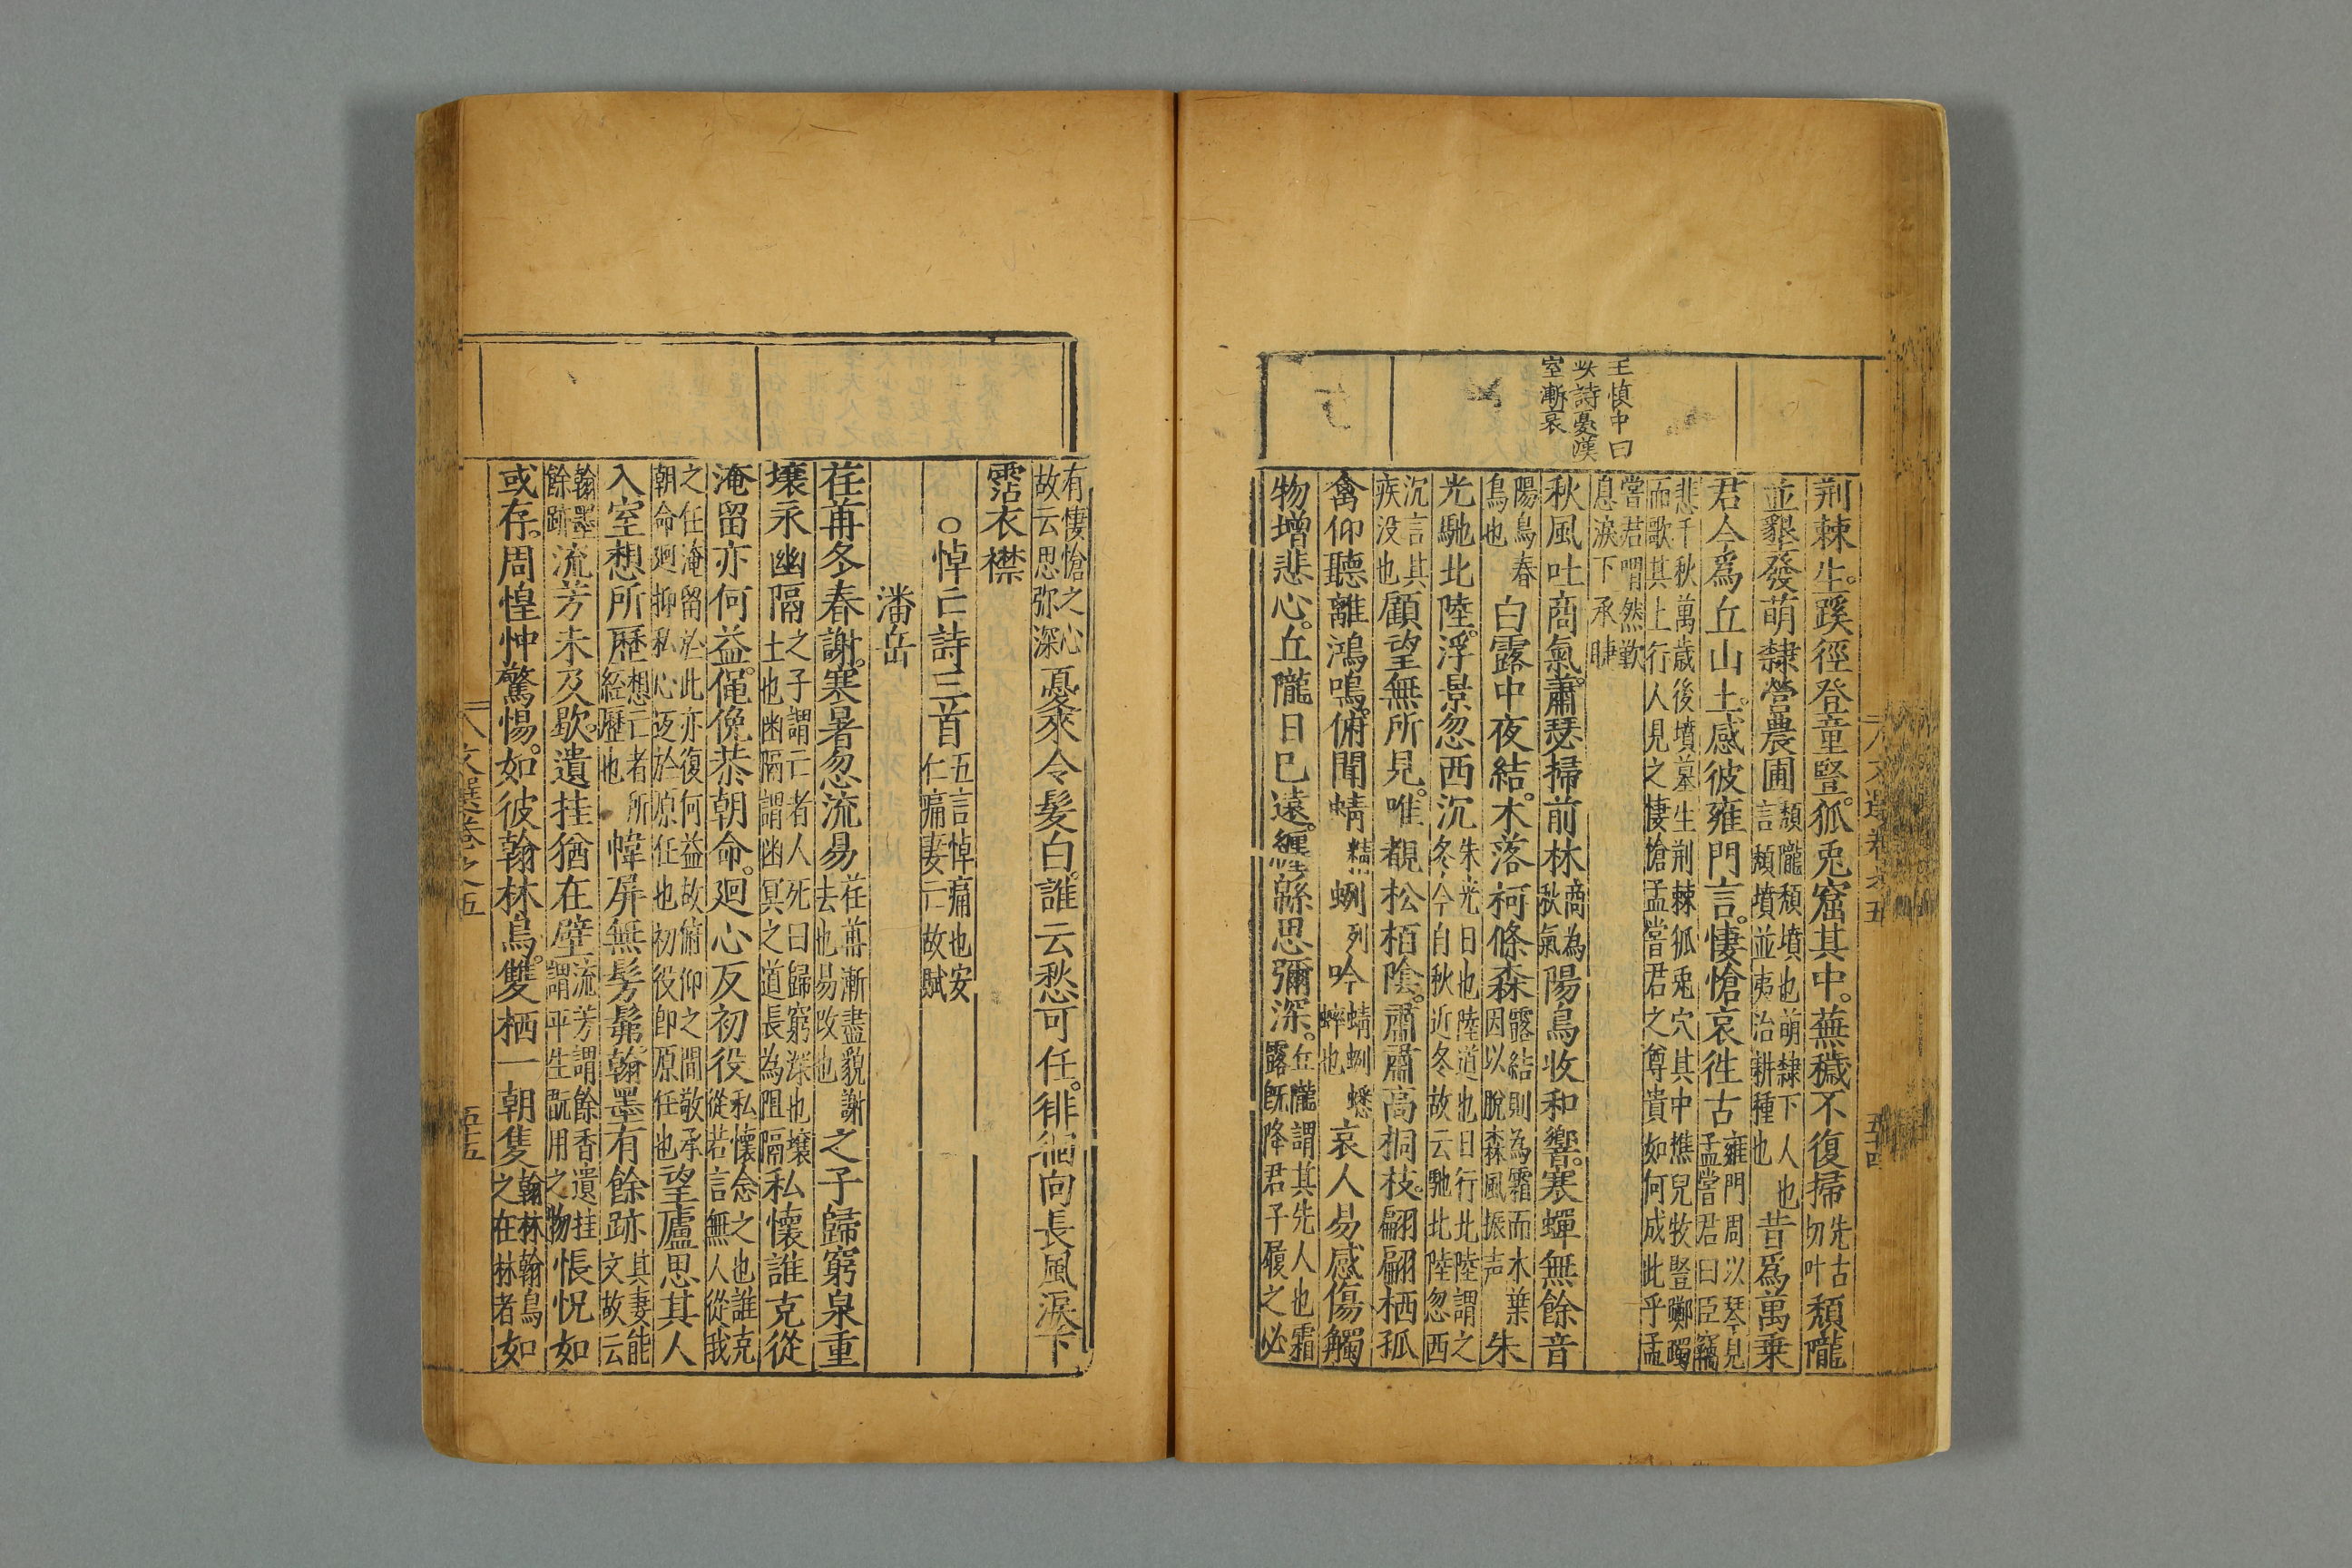 王慎中曰
此詩憂漢
室漸衰
荆棘生。蹊徑登童豎。狐兎窟其中。蕪穢不復掃先古切叶頹隴
並墾發萌隸營農圃頹隴頹墳也萌隸下人也言頹墳並夷治耕種也昔爲萬乗
君今爲丘山土。感彼雍門言。悽愴哀徃古雍門周以琴見孟嘗君曰臣竊
悲千秋萬歳後墳墓生荆棘狐兎穴其中樵兒牧豎躑躅而歌其上行人見之悽愴孟嘗君之尊貴如何成此乎孟
嘗君喟然歎息淚下承睫
秋風吐商氣。蕭瑟掃前林商為秋氣陽鳥收和響。寒蟬無餘音
陽鳥春鳥也白露中夜結。木落柯條森露結則為霜而木葉因以脫森風振声朱
光馳北陸。浮景忽西沉朱光日也陸道也日行北陸謂之冬今自秋近冬故云馳北陸忽西
沉言其疾没也顧望無所見。唯覩松栢陰。肅肅高桐枝。翩翩栖孤
禽仰聽離鴻鳴。俯聞蜻精蛚列吟蜻蛚蟋蟀也哀人易感傷觸
物増悲心。丘隴日巳遠。纏緜思彌深。丘隴謂其先人也霜露旣降君子履之必
有悽愴之心故云思弥深憂來令髮白。誰云愁可任。徘徊向長風淚下
霑衣襟
○悼亡詩三首五言悼痛也安仁痛妻亡故賦
潘岳
荏苒冬春謝。寒暑忽流易荏苒漸盡貌謝去也易改也之子歸窮泉重
壤永幽隔之子謂亡者人死曰歸窮深也壤土也幽隔謂幽冥之道長為阻隔私懷誰克從
淹留亦何益。僶俛恭朝命。廻心反初役私懷念之也誰克從若言無人從我
之任淹留於此亦復何益故俯仰之間敬承朝命廻抑私心返於原任也初役即原任也望廬思其人
入室想所歷想亡者所經歷也幃屏無髣髴翰墨有餘跡其妻能文故云
翰墨餘跡流芳未及歇。遺挂猶在壁流芳謂餘香遺挂謂平生翫用之物悵怳如
或存。周惶忡驚惕。如彼翰林鳥。雙栖一朝隻翰林翰鳥之在林者如
文選卷之五
五五